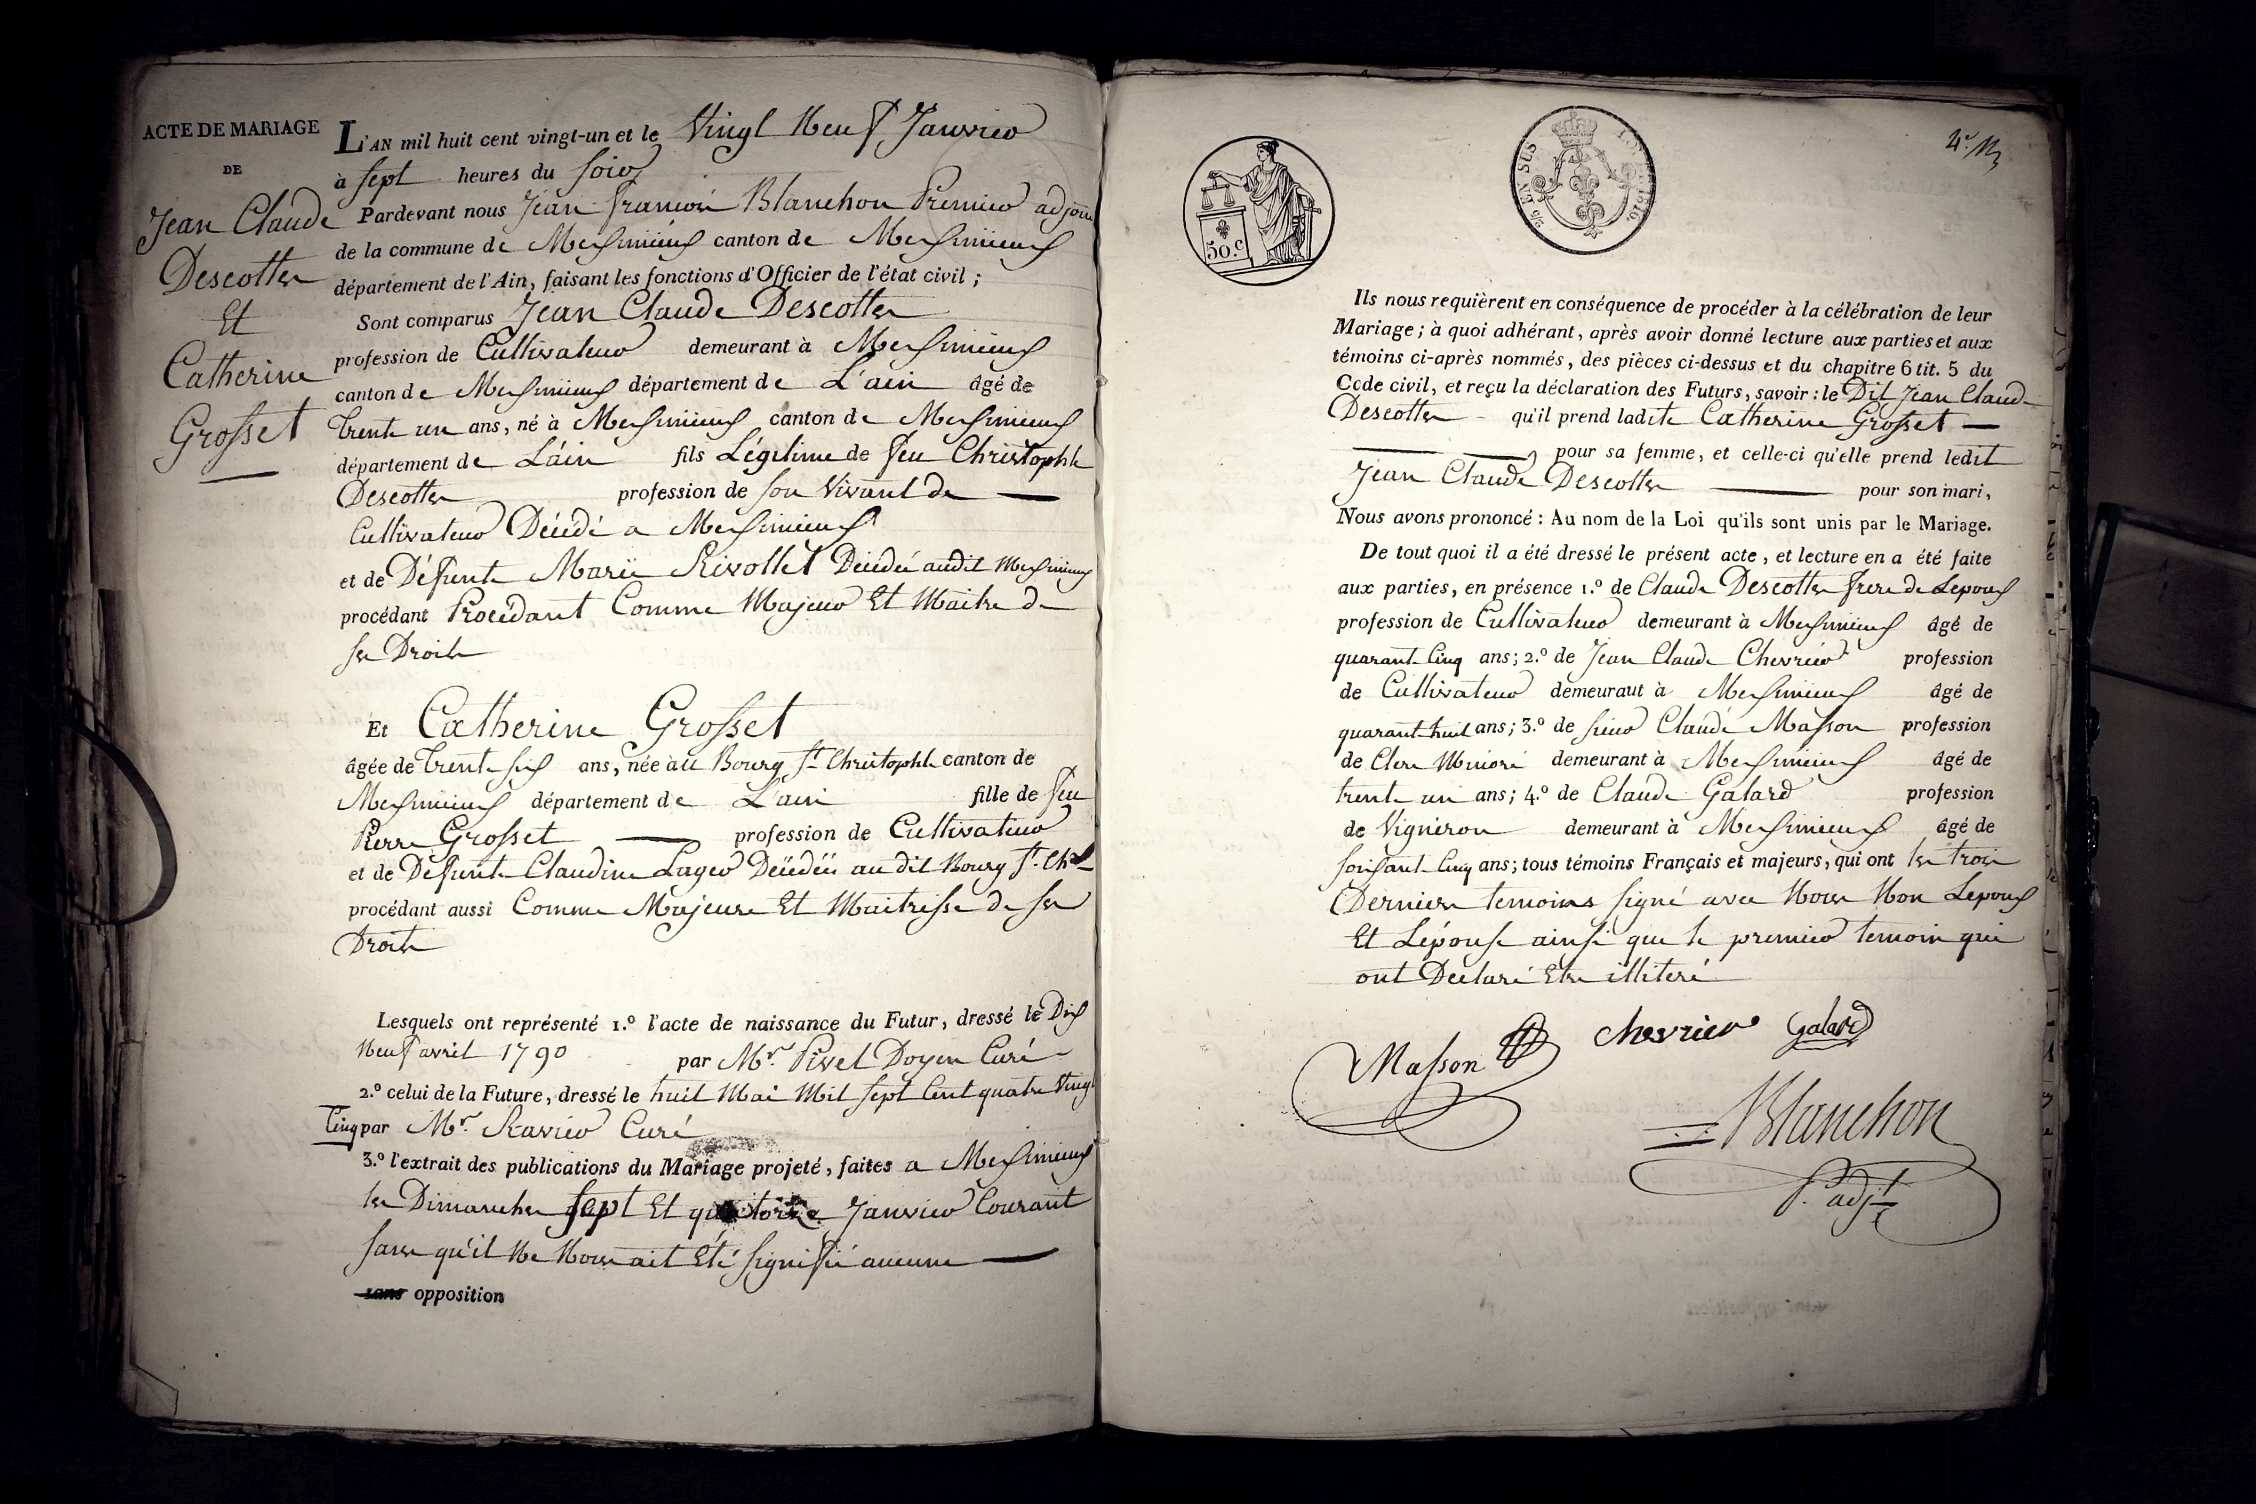 ACTE DE MARIAGE
DE
Jean Claude
Descottes
Et
Catherine
Grosset
L'AN mil huit cent vingt-un et le Vingt Neuf Janvier
à Sept heures du Soir
Pardevant nous Jean François Blanchon Premier adjoint
de la commune de Meximieux canton de Meximieux
département de l'Ain, faisant les fonctions d'Officier de l'état civil ;
Sont comparus Jean Claude Descottes
profession de Cultivateur demeurant à Meximieux
canton de Meximieux département de L'ain âgé de
trente un ans, né à Meximieux canton de Meximieux
département de L'ain fils Légitime de feu Christophle
Descottes profession de Son Vivant de
Cultivateur Décédé a Meximieux
et de Défunte Marie Rivollet Décédée audit Meximieux
procédant Procédant Comme Majeur Et Maitre de
ses Droits
Et Catherine Grosset
âgée de trente six ans, née au Bourg St Christophle canton de
Meximieux département de L'ain fille de feu
Pierre Grosset profession de Cultivateur
et de Défunte Claudine Lager Décédés au dit Bourg St
procédant aussi Comme Majeure Et Maitrisse de ses
Droits
Lesquels ont représenté 1.º l'acte de naissance du Futur, dressé le Dix
Neuf avril 1790 par Mr. Pivet Doyen Curé
2.º celui de la Future, dressé le huit Mai Mil sept Cent quatre Vingt
Cinq par Mr. Ravier Curé
3.º l'extrait des publications du Mariage projeté, faites a Meximieux
les Dimanches sept Et quatorze Janvier Courant
sans qu'il Ne Nous ait Eté signifié aucune
sans opposition
50.c
EN SUS
Ils nous requièrent en conséquence de procéder à la célébration de leur
Mariage ; à quoi adhérant, après avoir donné lecture aux parties et aux
témoins ci-après nommés, des pièces ci-dessus et du chapitre 6 tit. 5 du
Code civil, et reçu la déclaration des Futurs, savoir : le Dit Jean Claude
Descottes qu'il prend ladite Catherine Grosset
pour sa femme, et celle-ci qu'elle prend ledit
Jean Claude Descottes pour son mari,
Nous avons prononcé : Au nom de la Loi qu'ils sont unis par le Mariage.
De tout quoi il a été dressé le présent acte, et lecture en a été faite
aux parties, en présence 1.º de Claude Descottes frere de Lepoux
profession de Cultivateur demeurant à Meximieux âgé de
quarante Cinq ans ; 2.º de Jean Claude Chevrier profession
de Cultivateur demeurant à Meximieux âgé de
quarante huit ans ; 3.º de sieur Claude Masson profession
de Clerc Minoré demeurant à Meximieux âgé de
trente un ans ; 4.º de Claude Galard profession
de Vigneron demeurant à Meximieux âgé de
soixante Cinq ans ; tous témoins Français et majeurs, qui ont les trois
Derniers temoins signé avec Nous Non Lepoux
Et Lépouse ainsi que le premier temoin qui
ont Declaré Etre illiteré
Masson chevrier Galard
Blanchon
P. adjt